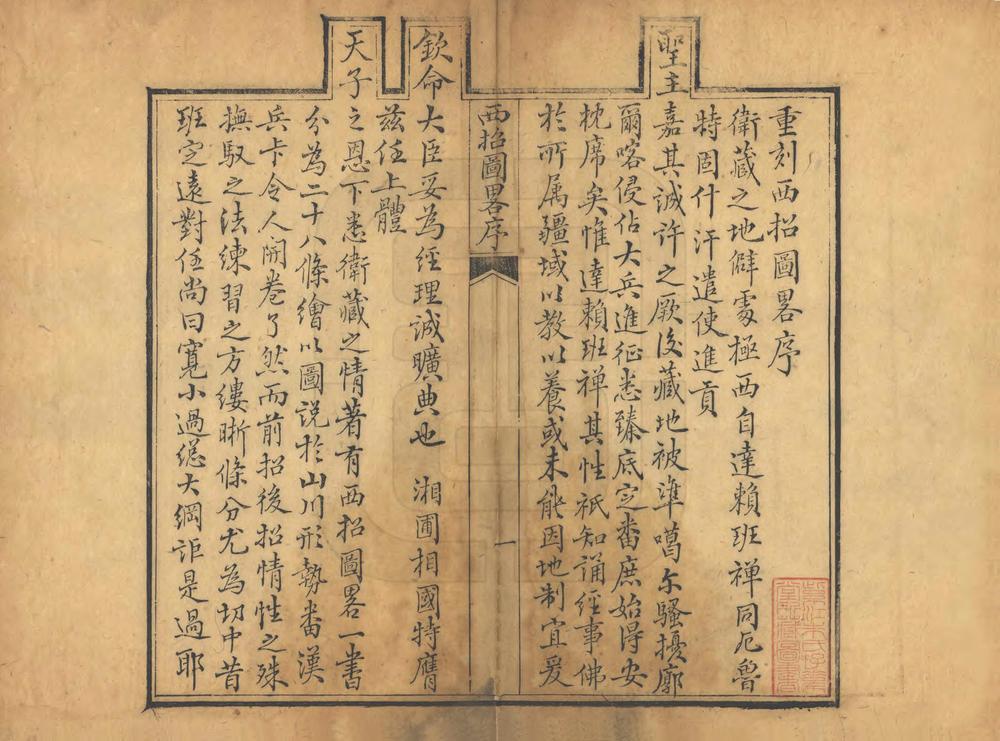 重刻西招圖畧序
衛藏之地僻處極西自達賴班禪同厄魯
特固什汗遣使進貢
聖主嘉其誠許之厥後藏地被準噶尔騷擾廓
爾喀侵佔大兵進征悉臻底定畨庶始得安
枕席矣惟達賴班禪其性祇知誦經事佛
扵所属疆域以教以養或未能因地制宜爰
西招圖畧序
一
欽命大臣妥為經理誠曠典也 湘圃相國特膺
兹任上體
天子之恩下悉衛藏之情著有西招圖畧一書
分為二十八條繪以圖説扵山川形勢畨漢
兵卡令人開卷了然而前招後招情性之殊
撫馭之法練習之方縷晰條分尤為切中昔
班定遠對任尚曰寬小過緫大綱詎是過耶